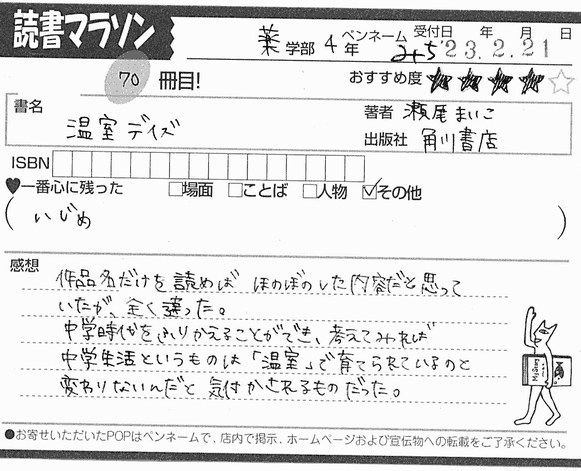 読書マラソン
薬 学部 4 年 ペンネーム みっち 受付日 '23.2.21 年 月 日
70 冊目! おすすめ度 ★★★★☆
書名 温室デイズ
著者 瀬尾まいこ
出版社 角川書店
ISBN
♥一番心に残った □場面 □ことば □人物 ☑その他
( いじめ )
感想
作品名だけを読めば ほのぼのした内容だと思って
いたが、全く違った。
中学時代をふりかえることができ、考えてみれば
中学生活というものは「温室」で育てられているのと
変わりないんだと 気付かされるものだった。
●お寄せいただいたPOPはペンネームで、店内で掲示、ホームページおよび宣伝物への転載をご了承ください。